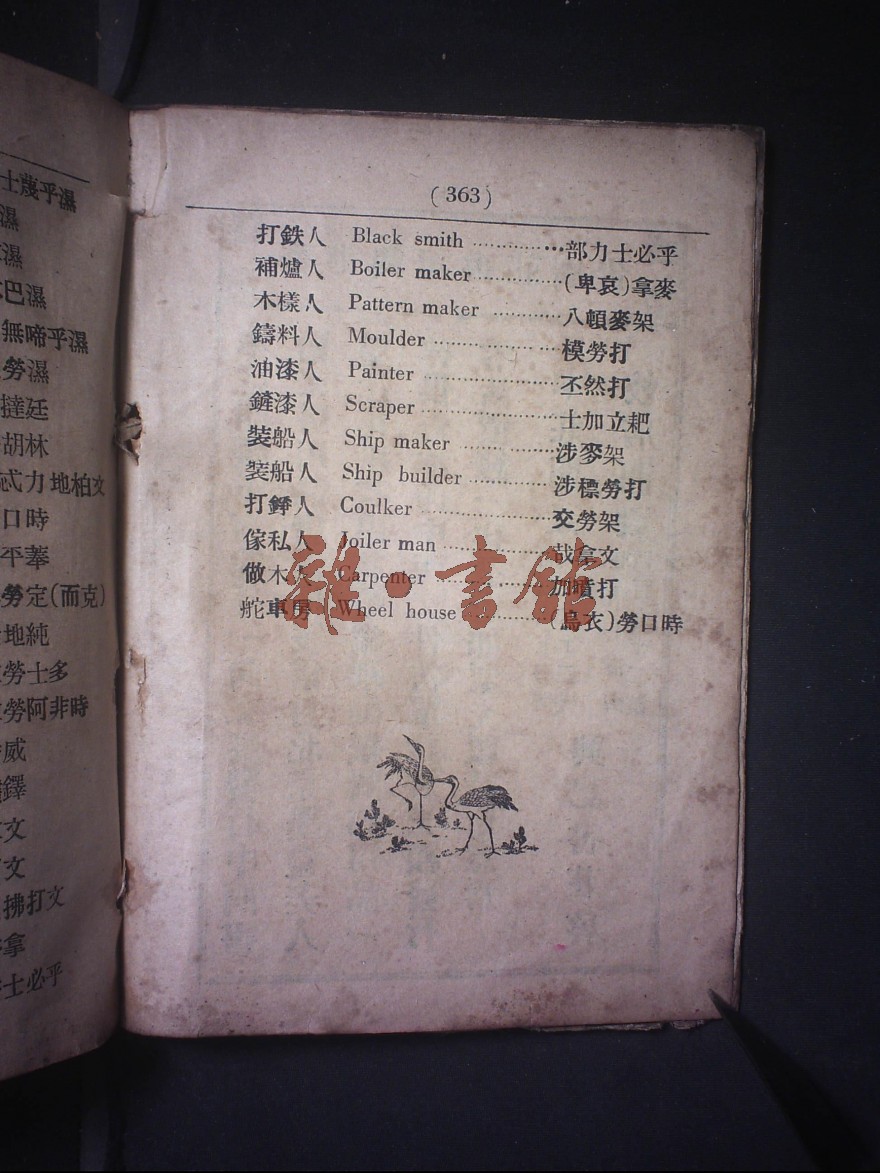 士蔑乎濕
濕
濕
巴濕
無啼乎濕
勞濕
撻廷
胡林
式力地柏文
口時
平菶
勞定(而克)
地純
勞士多
勞阿非時
威
鐸
文
文
拂打文
拿
士必乎
(363)
打鉄人 Black smith ················部力士必乎
補爐人 Boiler maker················(卑哀)拿麥
木樣人 Pattern maker ············八頓麥架
鑄料人 Moulder ·················模勞打
油漆人 Painter ······················丕然打
鏟漆人 Scraper······················士加立耙
裝船人 Ship maker ················涉麥架
裝船人 Ship builder ·············涉標勞打
打錚人 Coulker ·····················交勞架
傢私人 Joiler man ················哉拿文
做木人 Carpenter ················加噴打
舵車房 Wheel house ··········(烏衣)勞口時
雜·書館